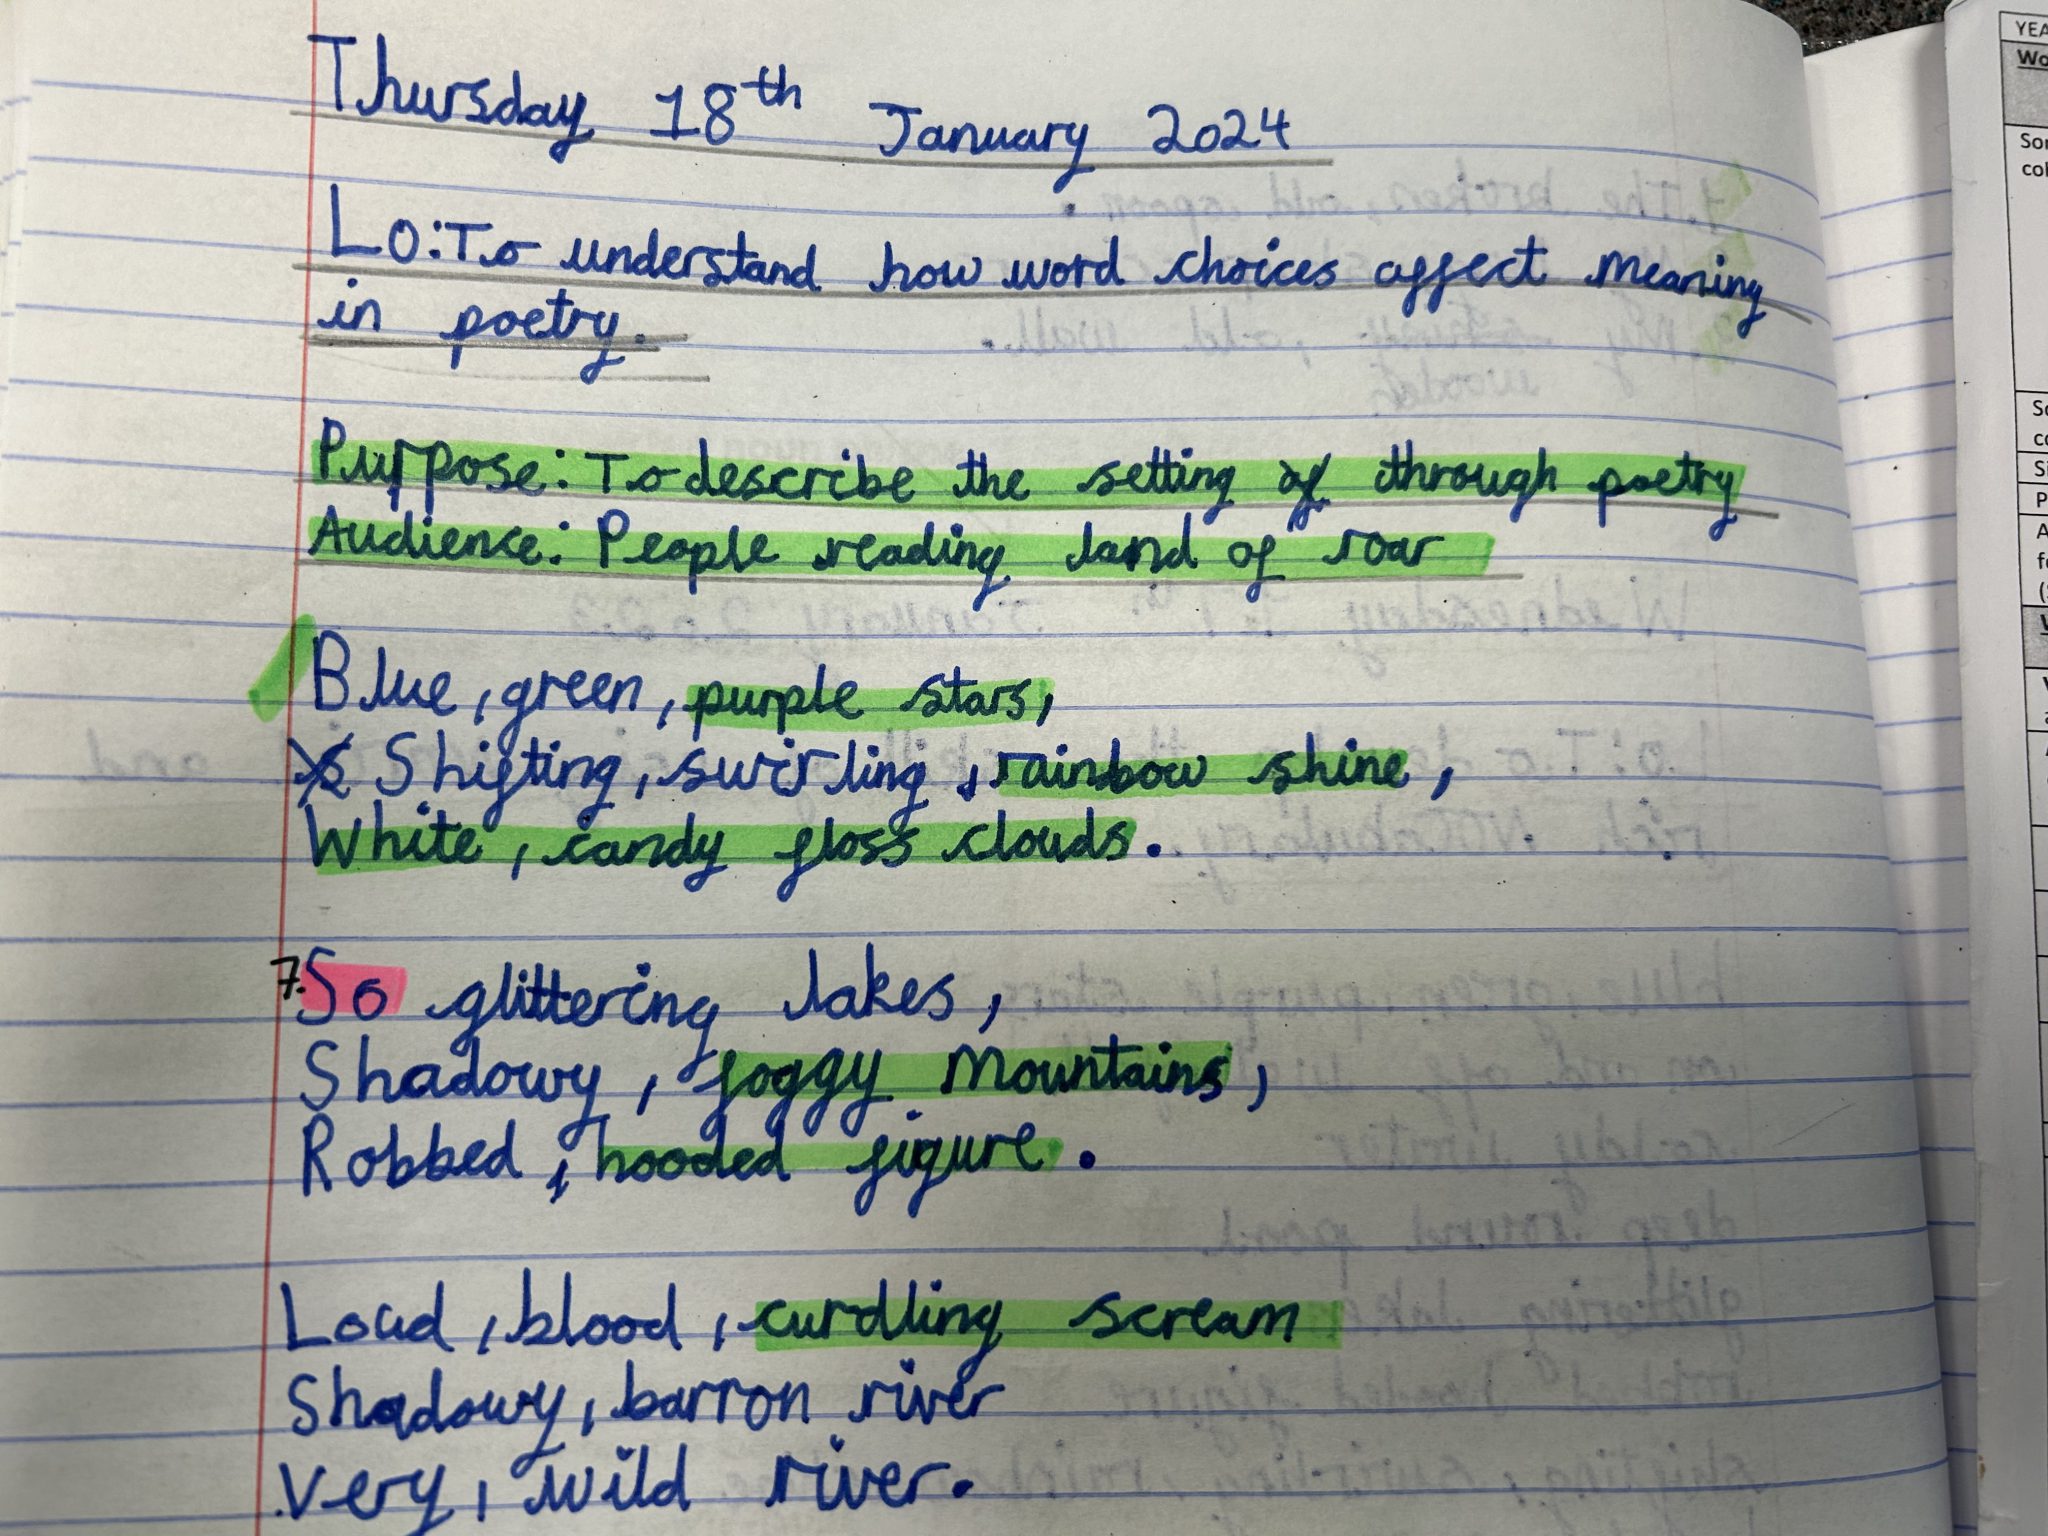 Thursday 18th January 2024
LO: To understand how word choices affect meaning
in poetry.
Purpose: To describe the setting of through poetry
Audience: People reading land of roar
Blue, green, purple stars,
Shifting, swirling, rainbow shine,
White, candy floss clouds.
7. So glittering lakes,
Shadowy, foggy Mountains,
Robbed, hooded figure.
Loud, blood, curdling scream
Shadowy, barron river
Very, wild river.
YEA
Wo